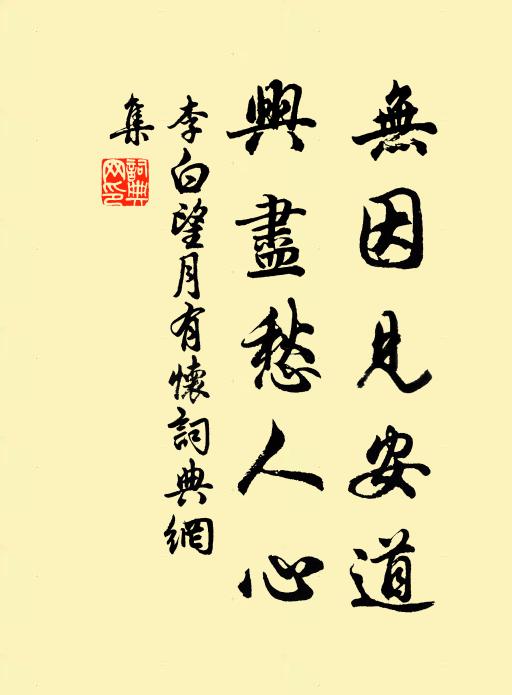 無因見安道
興盡愁人心
李白望月有懷詞典網
集
詞典網印